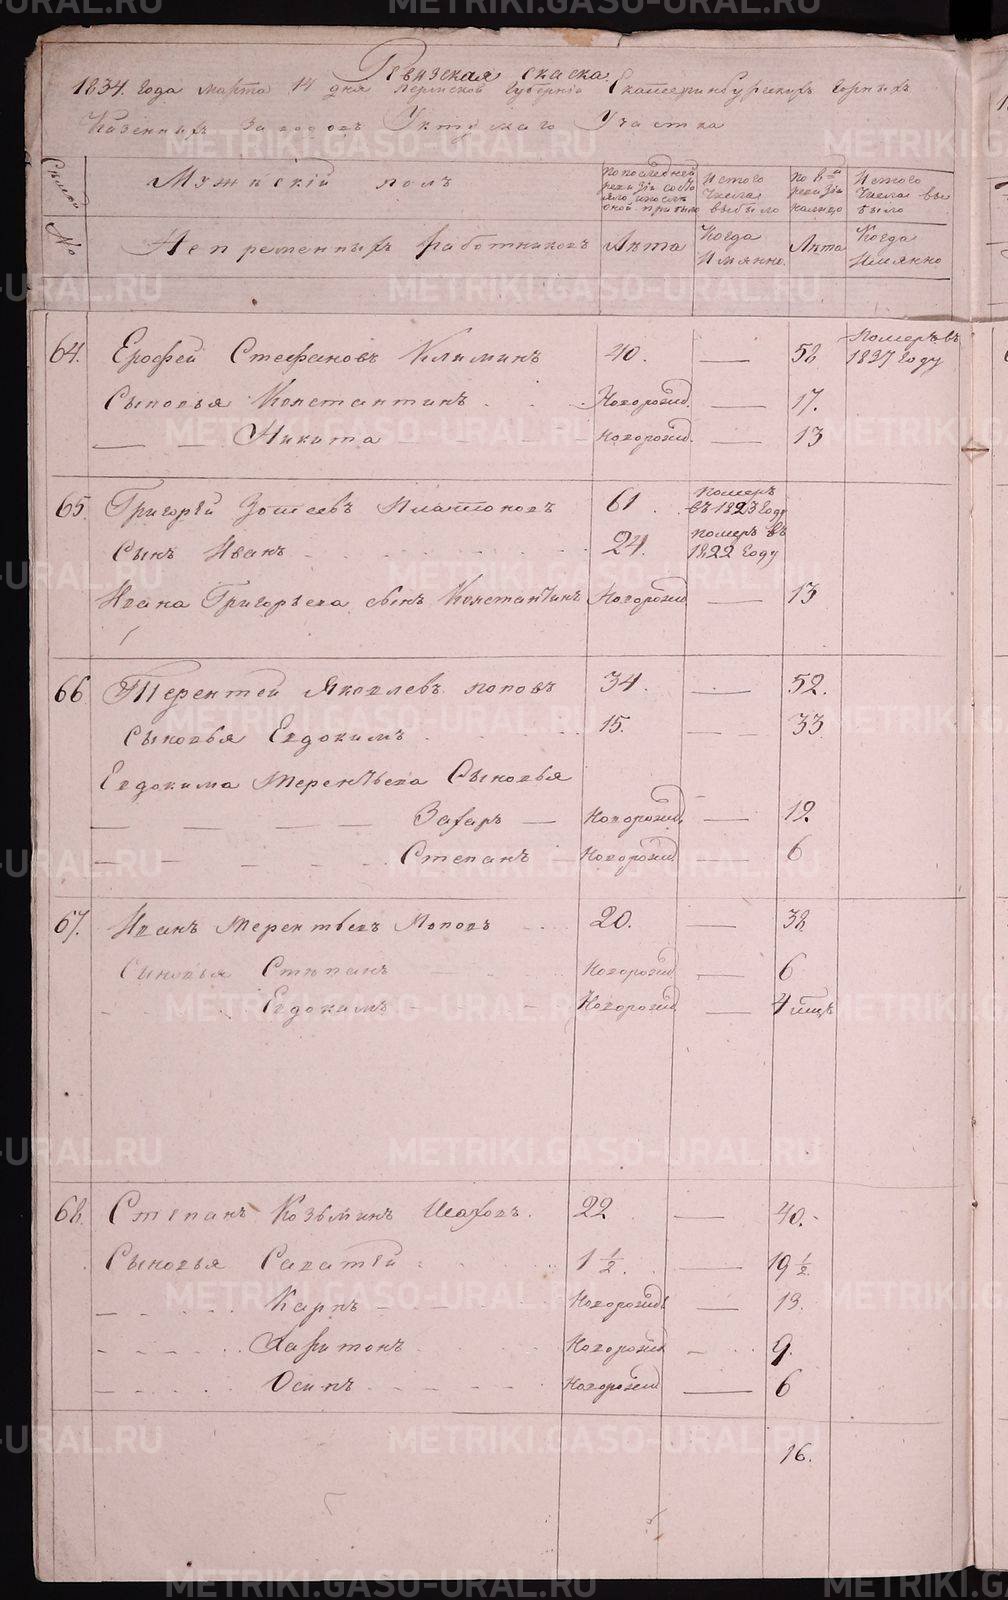 Ревизская сказка.
1834. года марта 14 дня Пермской Губернiи Екатеринбургскихъ Горныхъ
Казенныхъ Заводовъ Уктускаго Участка
Семей №
Мужескiй полъ
По последней ревизiи состояло, и после оной прибыло
Изтого Числа выбыло
По 8й ревизiи налицо
Изтого Числа выбыло
Непременныхъ работниковъ
Лѣта
Когда Имянно.
Лѣта
Когда Имянно
64. Ерофей Стефановъ Климинъ 40. — 58 Померъ въ 1827 Году
Сыновья Константинъ Новорожд. — 17.
— — Никита — Новорожд. — 13
65. Григорей Зотеевъ Платоновъ 61. Померъ въ 1823 Году
Сынъ Иванъ 24. Померъ въ 1822 Году
Ивана Григорьева сынъ Константинъ Новорожд — 13
66. Терентей Яковлевъ Поповъ 34. — 52.
Сыновья Евдокимъ 15. — 33
Евдокима Терентьева Сыновья
— — — — Захаръ — Новорожд. — 12.
— — — Степанъ Новорожд — 6
67. Иванъ Терентьевъ Поповъ 20. — 38
Сыновья Степанъ Новорожд — 6
Евдокимъ — Новорожд — 4 мцъ
68. Степанъ Козьминъ Шаховъ. 22 — 40.
Сыновья Саватей 1 1/2. — 19 1/2.
Карпъ Новорожд — 13.
Харитонъ Новорожд — 9.
Осипъ Новорожд — 6
16.
METRIKI.GASO-URAL.RU